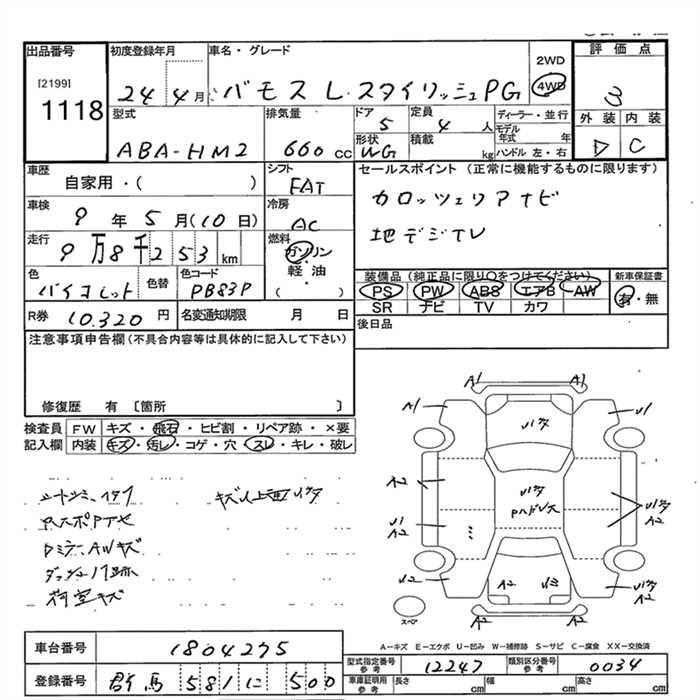 出品番号 初度登録年月 車名・グレード 2WD 評価点
[2199] 24年 4月 バモス L スタイリッシュPG 4WD 3
1118 型式 排気量 ドア 5 定員 4人 ディーラー・並行 外装 内装
ABA-HM2 660cc 形状 WG 積載 kg モデル年式 年 ハンドル 左・右 D C
車歴 自家用・( ) シフト FAT セールスポイント(正常に機能するものに限ります)
車検 9年 5月(10日) 冷房 AC カロッツェリアナビ
走行 9万8千253km 燃料 ガソリン・軽油・( ) 地デジTV
色 バイオレット 色替 色コード PB83P 装備品(純正品に限り○をつけてください) 新車保証書
PS PW ABS エアB AW 有・無
R券 10,320円 名変通知期限 月 日 SR ナビ TV カワ
注意事項申告欄(不具合内容等は具体的に記入して下さい) 後日品
修復歴 有 〔箇所 〕
検査員 FW キズ・飛石・ヒビ割・リペア跡・×要
記入欄 内装 キズ・汚レ・コゲ・穴・スレ・キレ・破レ
A1 A1
A1 U1
Uワタ
A2 Uワタ
U1 A2 A2
U2 A2 A2
A2 A2
スペア
ダッシュ
荷室キズ
A-キズ E-エクボ U-凹み W-補修跡 S-サビ C-腐食 XX-交換済
車台番号 1804275 型式指定番号 参考 12247 類別区分番号 参考 0034
登録番号 群馬 581 に 500 車庫証明用 参考 長さ cm 幅 cm 高さ cm